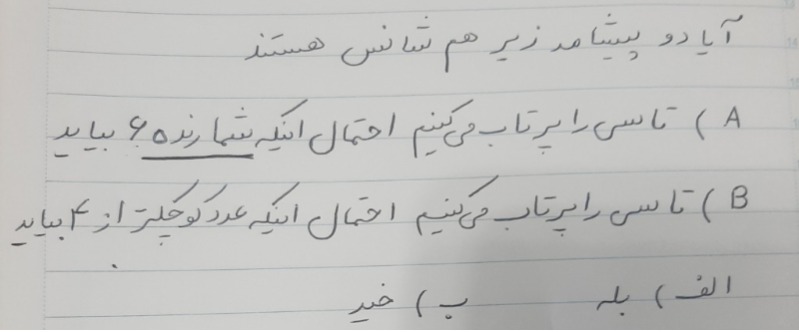 آیا دو پیشامد زیر هم شانس هستند
A) تاسی را پرتاب می‌کنیم احتمال اینکه شمارنده ۶ بیاید
B) تاسی را پرتاب می‌کنیم احتمال اینکه عدد کوچکتر از ۴ بیاید
الف) بله ب) خیر